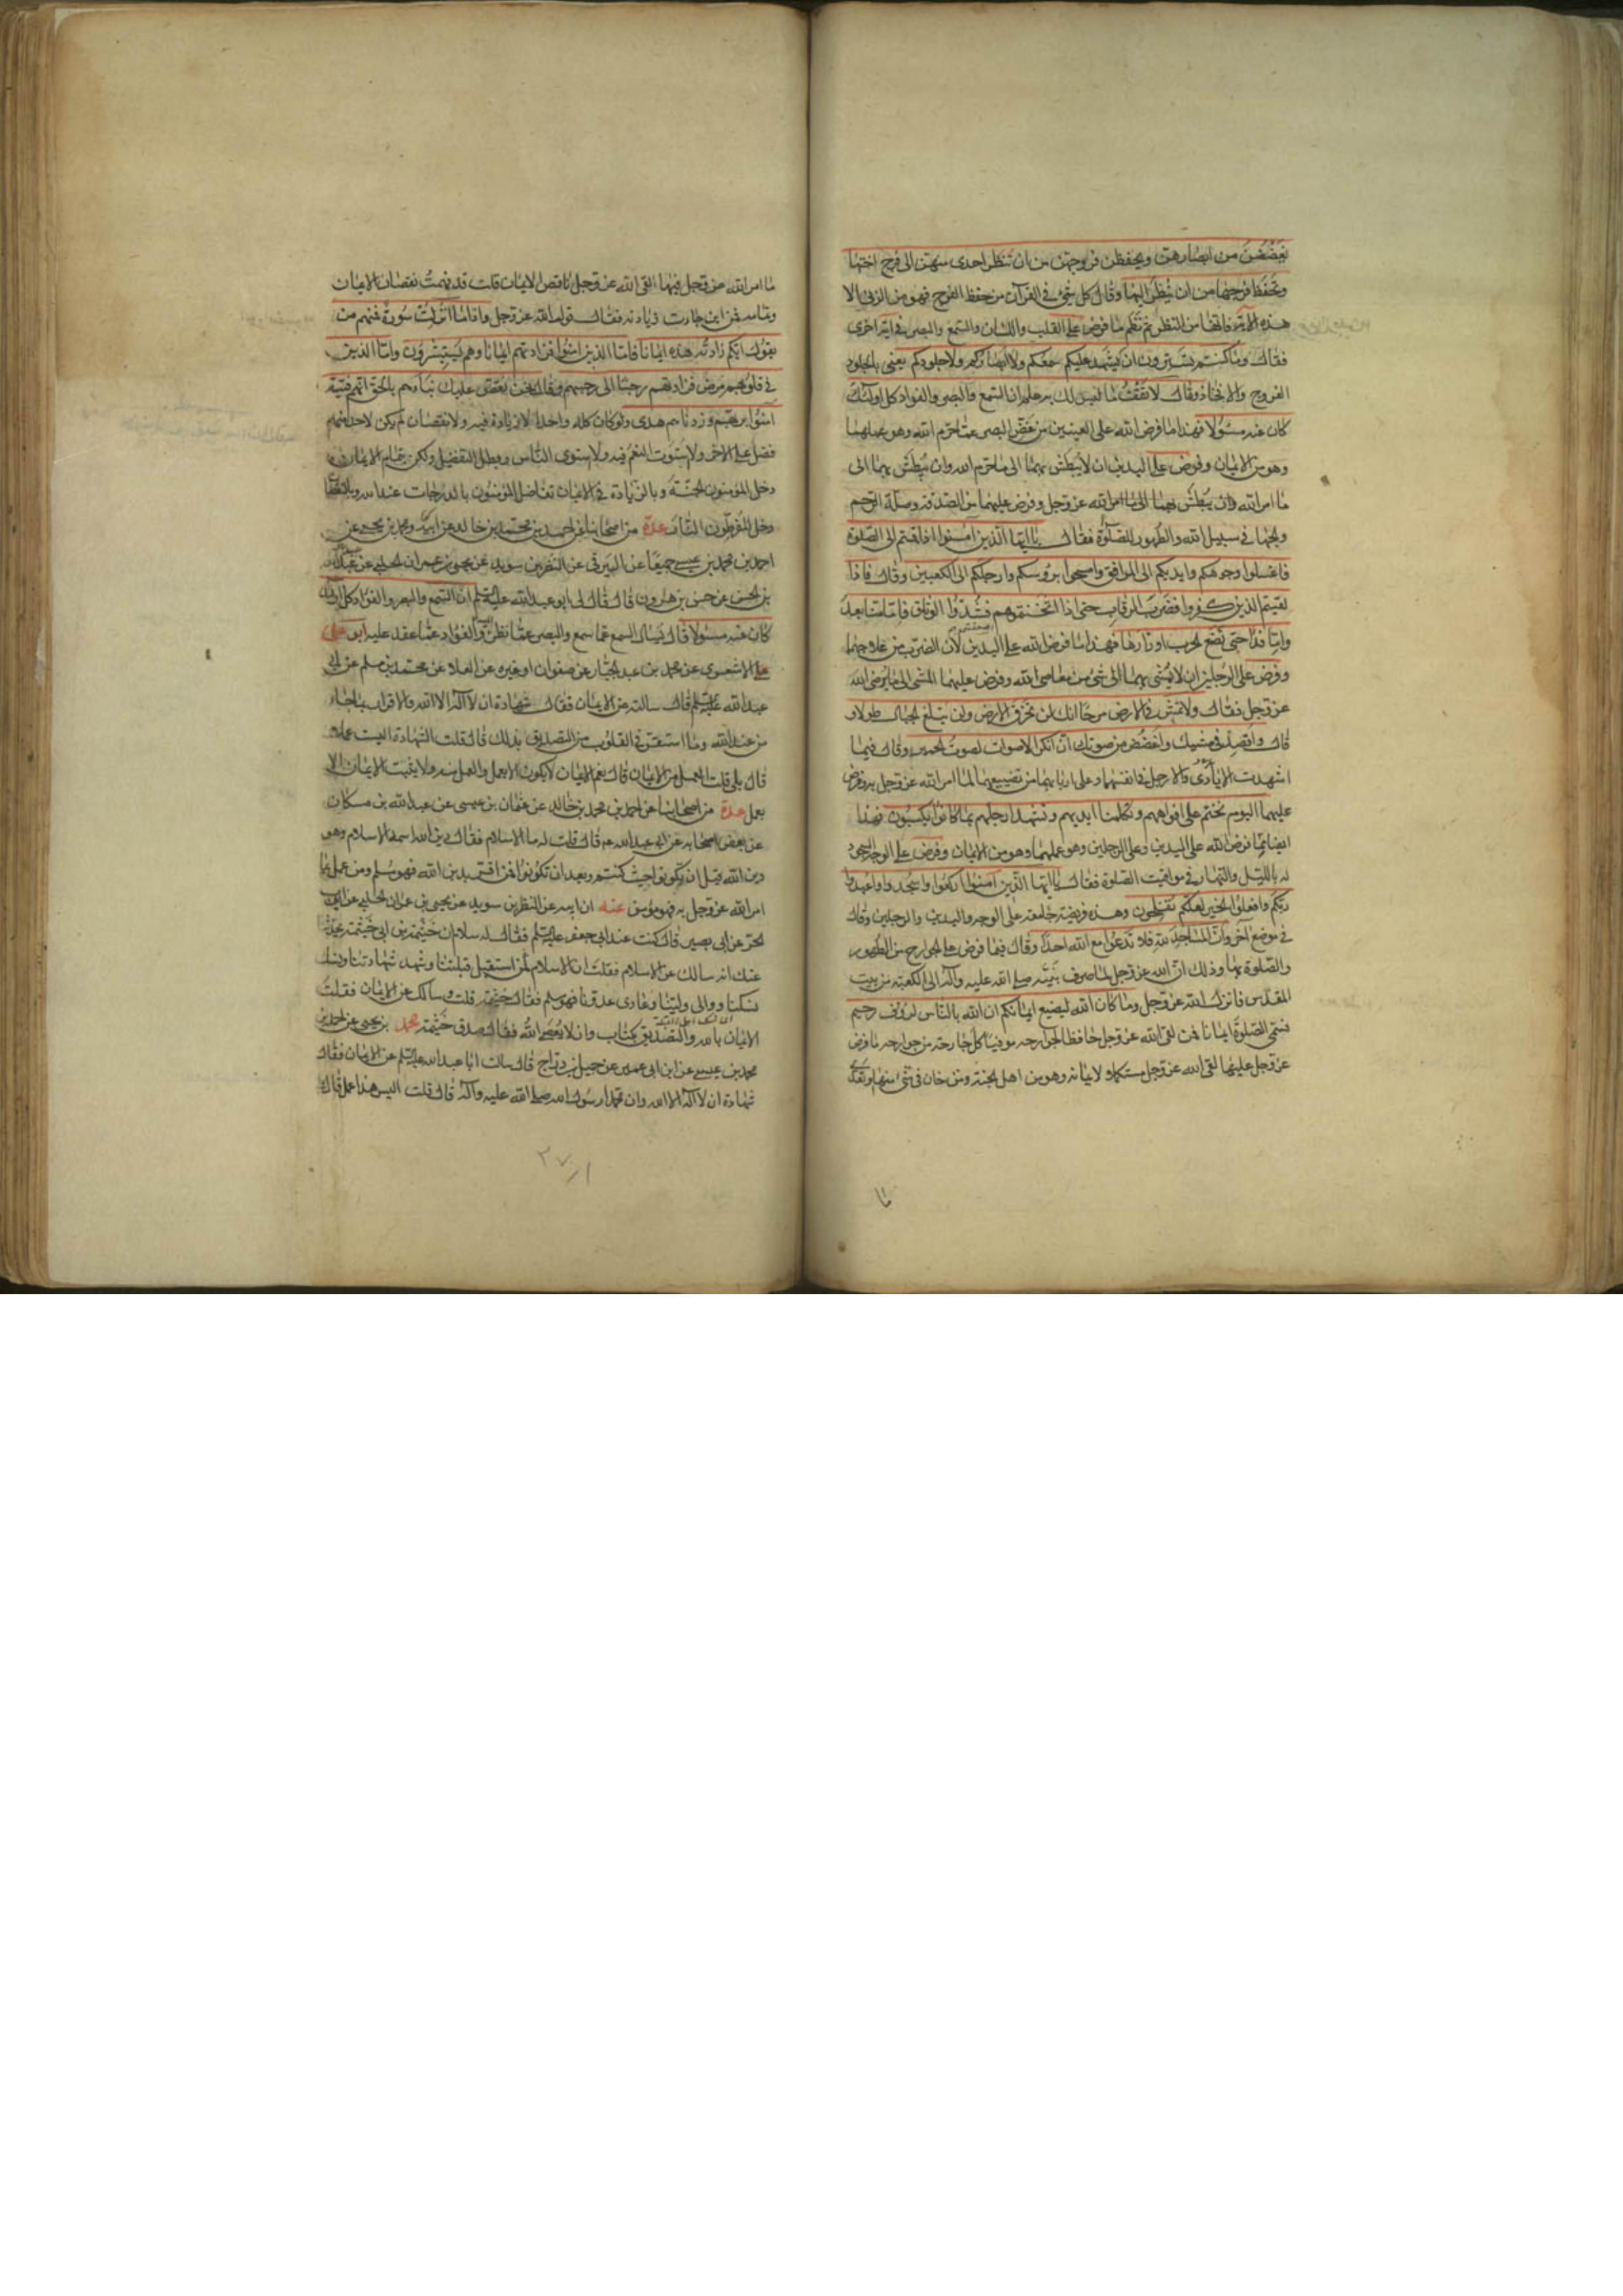 يغضضن من ابصارهن ويحفظن فروجهن من ان تنظر احدى منهن الى فرج اختها
وتحفظ فرجها من ان ينظر اليها وقال كل شئ في القرآن من حفظ الفرج فهو من الزنى الا
هذه الاية فانها من النظر ثم نظم ما فرض على القلب واللسان والسمع والبصر في اية اخرى
فقال وما كنتم تستترون ان يشهد عليكم سمعكم ولا ابصاركم ولا جلودكم يعني بالجلود
الفروج والافخاذ وقال لا تقف ما ليس لك به علم ان السمع والبصر والفواد كل اولئك
كان عنه مسئولا فهذا ما فرض الله على العينين من غض البصر عما حرم الله وهو عملهما
وهو من الايمان وفرض على اليدين ان لا يبطش بهما الى ما حرم الله وان يبطش بهما الى
ما امر الله وان يبطش بهما الى ما امر الله عز وجل وفرض عليهما من الصدقة وصلة الرحم
والجهاد في سبيل الله والطهور للصلوة فقال يا ايها الذين آمنوا اذا قمتم الى الصلوة
فاغسلوا وجوهكم وايديكم الى المرافق وامسحوا برؤسكم وارجلكم الى الكعبين وقال فاذا
لقيتم الذين كفروا فضرب الرقاب حتى اذا اثخنتموهم فشدوا الوثاق فاما منا بعد
واما فداء حتى تضع الحرب اوزارها فهذا ما فرض الله على اليدين لان الضرب من علاجهما
وفرض على الرجلين ان لا يمشى بهما الى شئ من معاصى الله وفرض عليهما المشى الى ما يرضى الله
عز وجل فقال ولا تمش في الارض مرحا انك لن تخرق الارض ولن تبلغ الجبال طولا و
قال واقصد في مشيك واغضض من صوتك ان انكر الاصوات لصوت الحمير وقال فيما
شهدت الايدى والارجل على انفسهما وعلى اربابهما من تضييعهما لما امر الله عز وجل به وفرض
عليهما اليوم نختم على افواههم وتكلمنا ايديهم وتشهد ارجلهم بما كانوا يكسبون فهذا
ايضا مما فرض الله على اليدين وعلى الرجلين وهو عملهما وهو من الايمان وفرض على الوجه السجود
له بالليل والنهار في مواقيت الصلوة فقال يا ايها الذين آمنوا اركعوا واسجدوا واعبدوا
ربكم وافعلوا الخير لعلكم تفلحون وهذه فريضة جامعة على الوجه واليدين والرجلين وقال
في موضع آخر وان المساجد لله فلا تدعوا مع الله احدا وقال فيما فرض على الجوارح من الطهور
والصلوة بها وذلك ان الله عز وجل لما صرف نبيه صلى الله عليه وآله الى الكعبة من بيت
المقدس فانزل الله عز وجل وما كان الله ليضيع ايمانكم ان الله بالناس لرؤف رحيم
فسمى الصلوة ايمانا فمن لقى الله عز وجل حافظا لجوارحه موفيا كل جارحة من جوارحه ما فرض
عز وجل عليها لقى الله عز وجل مستكملا لايمانه وهو من اهل الجنة ومن خان في شئ منها او تعدى
ما
ما امر الله عز وجل فيها لقى الله عز وجل ناقص الايمان قلت قد فهمت نقصان الايمان
وتمامه فمن اين جاءت زيادته فقال قول الله عز وجل واذا ما انزلت سورة فمنهم من
يقول ايكم زادته هذه ايمانا فاما الذين امنوا فزادتهم ايمانا وهم يستبشرون واما الذين
في قلوبهم مرض فزادتهم رجسا الى رجسهم وقال نحن نقص عليك نبأهم بالحق انهم فتية
آمنوا بربهم وزدناهم هدى ولو كان كله واحدا لا زيادة فيه ولا نقصان لم يكن لاحد منهم
فضل على الاخر ولاستوت النعم فيه ولاستوى الناس وبطل التفضيل ولكن بتمام الايمان
دخل المؤمنون الجنة وبالزيادة في الايمان تفاضل المؤمنون بالدرجات عند الله وبالنقصان
دخل المفرطون النار عدة من اصحابنا عن احمد بن محمد بن خالد عن ابيه ومحمد بن يحيى عن
احمد بن محمد بن عيسى جميعا عن البرقى عن النضر بن سويد عن يحيى بن عمران الحلبى عن عبيد الله
بن الحسن عن حسن بن هرون قال قال لى ابو عبد الله عليه السلم ان السمع والبصر والفؤاد كل اولئك
كان عنه مسئولا قال يسال السمع عما سمع والبصر عما نظر اليه والفؤاد عما عقد عليه ابو على
الاشعرى عن محمد بن عبد الجبار عن صفوان او غيره عن العلاء عن محمد بن مسلم عن ابى
عبد الله عليه السلم قال سالته عن الايمان فقال شهادة ان لا اله الا الله والاقرار بما جاء
من عند الله وما استقر في القلوب من التصديق بذلك قال قلت الشهادة اليست عملا
قال بلى قلت العمل من الايمان قال نعم الايمان لا يكون الا بعمل والعمل منه ولا يثبت الايمان الا
بعمل عدة من اصحابنا عن احمد بن محمد بن خالد عن عثمان بن عيسى عن عبد الله بن مسكان
عن بعض اصحابه عن ابى عبد الله ع قال قلت له ما الاسلام فقال دين الله اسمه الاسلام وهو
دين الله قبل ان تكونوا حيث كنتم وبعد ان تكونوا فمن اقر بدين الله فهو مسلم ومن عمل بما
امر الله عز وجل به فهو مؤمن عنه عن ابيه عن النضر بن سويد عن يحيى بن عمران الحلبى عن ايوب
الحر عن ابى بصير قال كنت عند ابى جعفر عليه السلم فقال له سلام ان خيثمة بن ابى خيثمة يحدثنا
عنك انه سالك عن الاسلام فقلت ان الاسلام من استقبل قبلتنا وشهد شهادتنا ونسك
نسكنا ووالى ولينا وعادى عدونا فهو مسلم فقال صدق خيثمة قلت وسالك عن الايمان فقلت
الايمان بالله والتصديق بكتاب الله وان لا يعصى الله فقال صدق خيثمة محمد بن يحيى عن احمد بن
محمد بن عيسى عن ابن ابى عمير عن جميل بن دراج قال سالت ابا عبد الله عليه السلم عن الايمان فقال
شهادة ان لا اله الا الله وان محمدا رسول الله صلى الله عليه وآله قال قلت اليس هذا عمل قال